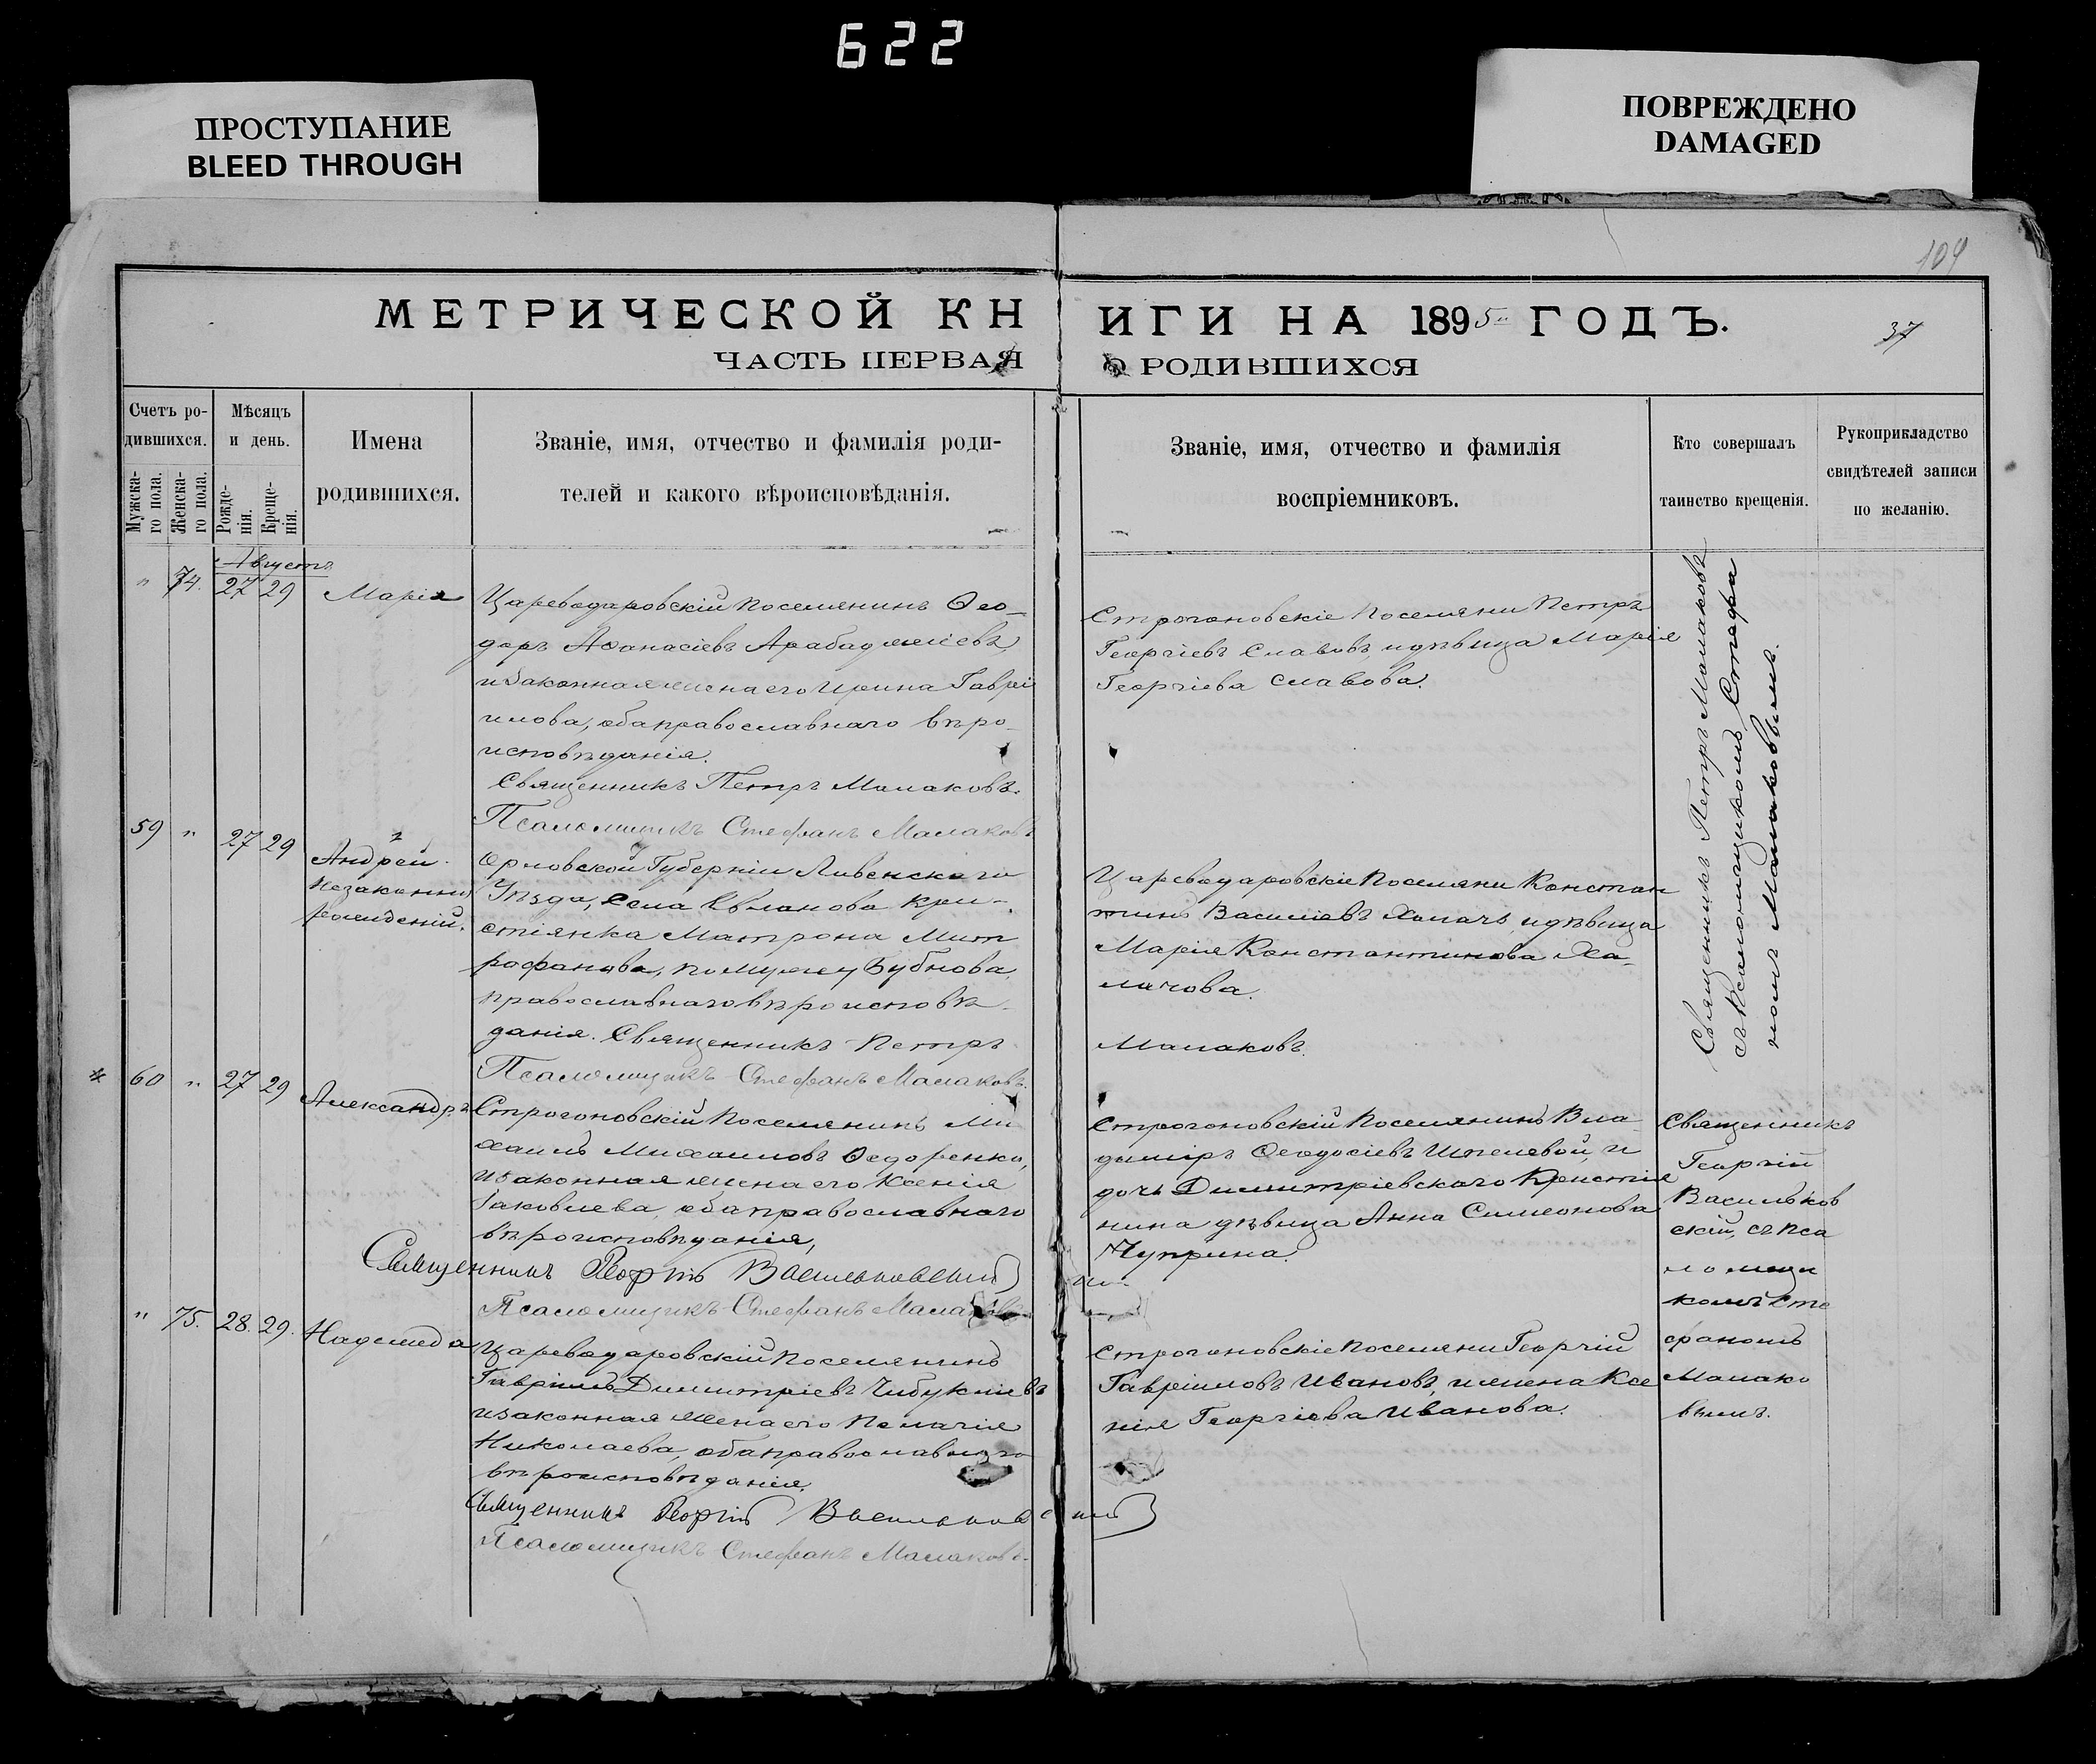 622
ПРОСТУПАНИЕ
BLEED THROUGH
ПОВРЕЖДЕНО
DAMAGED
104
МЕТРИЧЕСКОЙ КН
ИГИ НА 1895 ГОДЪ.
37
ЧАСТЬ ПЕРВАЯ
О РОДИВШИХСЯ
Счетъ ро-
дившихся.
Мужска-
го пола.
Женска-
го пола.
Мѣсяцъ
и день.
Рожде-
нія.
Креще-
нія.
Имена
родившихся.
Званіе, имя, отчество и фамилія роди-
телей и какого вѣроисповѣданія.
Званіе, имя, отчество и фамилія
воспріемниковъ.
Кто совершалъ
таинство крещенія.
Рукоприкладство
свидѣтелей записи
по желанію.
Августъ
" 74. 27 29 Марія
Цареводаровскій поселянинъ Ѳео-
доръ Аѳанасіевъ Арабаджіевъ,
и законная жена его Ирина Гаврі
илова, оба православнаго вѣро-
исповѣданія.
Священникъ Петръ Малаковъ.
Псаломщикъ Стефанъ Малаковъ
Строгоновскіе поселяни Петръ
Георгіевъ Славовъ, и дѣвица Марія
Георгіева Славова.
Священникъ Петръ Малаковъ
съ Псаломщикомъ Стефа
номъ Малаковымъ.
59 " 27 29 Андрей
незаконно
рожденій.
Орловской Губерніи Ливенскаго
Уѣзда, села Евланова кре-
стіянка Матрона Мит
рофанова, по мужу Бубнова,
православнаго вѣроисповѣ-
данія. Священникъ Петръ
Малаковъ.
Псаломщикъ Стефанъ Малаковъ.
Цареводаровскіе поселяни Констан
тинъ Василіевъ Халачъ, и дѣвица
Марія Константинова Ха-
лачова.
60 " 27 29 Александръ
Строгоновскій поселянинъ Ми
хаилъ Михаиловъ Ѳедоренко,
и законная жена его Ксенія
Іаковлева, оба православнаго
вѣроисповѣданія,
Священникъ Георгій Васильковскій
Псаломщикъ Стефанъ Малаковъ
Строгоновскій поселянинъ Вла
диміръ Ѳеодосіевъ и
дочь Димитріевскаго Крестія
нина дѣвица Анна Симеонова
Чуприна.
Священникъ
Георгій
Васильков
скій, съ пса
ломщи
комъ Сте
фаномъ
Малако
вымъ.
" 75. 28. 29. Надежда
Цареводаровскій поселянинъ
Гавріилъ Димитріевъ Чибукчіевъ
и законная жена его Пелагія
Николаева, оба православнаго
вѣроисповѣданія.
Священникъ Георгій Васильковскій
Псаломщикъ Стефанъ Малаковъ.
Строгоновскіе поселяни Георгій
Гавріиловъ Ивановъ, и жена Ксе
нія Георгіева Иванова.